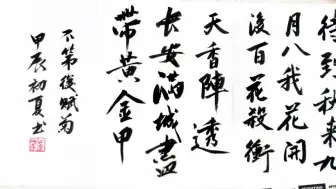 待到秋来九
月八我花開
後百花殺衝
天香陣透
長安滿城盡
帶黃金甲
不第後賦菊
甲辰初夏書